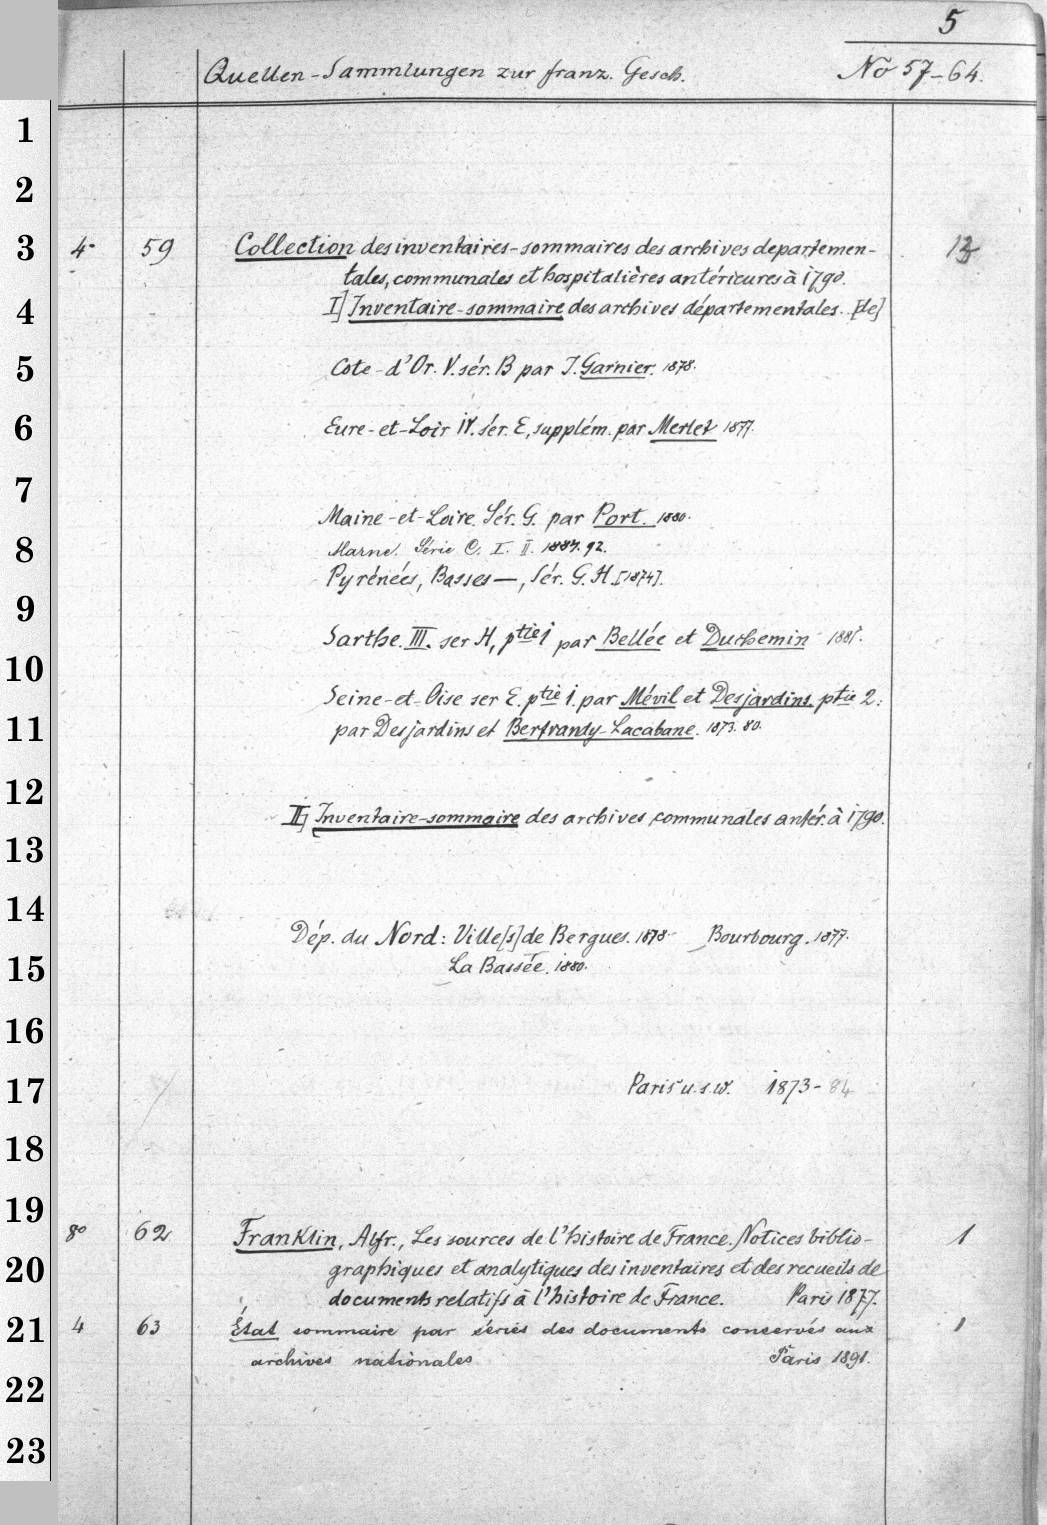 5
Quellen-Sammlungen zur franz. Gesch. No 57-64.
1
2
3 4° 59 Collection des inventaires-sommaires des archives departemen-
tales, communales et hospitalières antérieures à 1790.
4 I] Inventaire-sommaire des archives départementales. [de]
5 Cote-d'Or. V. sér. B par J. Garnier. 1878.
6 Eure-et-Loir IV. sér. E, supplém. par Merlet 1877.
7
Maine-et-Loire. Sér. G. par Port. 1880.
8 Marne. Série C. I. II. 1884. 92.
Pyrénées, Basses—, Sér. G. H. [1874].
9
Sarthe. III. ser H, ptie 1 par Bellée et Duchemin 1881.
10
Seine-et-Oise ser E. ptie 1. par Mévil et Desjardins. ptie 2:
11 par Desjardins et Bertrandy-Lacabane. 1873. 80.
12
II] Inventaire-sommaire des archives communales antér. à 1790.
13
14
Dép. du Nord: Ville[s] de Bergues. 1878. Bourbourg. 1877.
15 La Bassée. 1880.
16
17 Paris u. s. w. 1873-84
18
19
8° 62 Franklin, Alfr., Les sources de l'histoire de France. Notices biblio- 1
20 graphiques et analytiques des inventaires et des recueils de
documents relatifs à l'histoire de France. Paris 1877.
21 4 63 État sommaire par séries des documents conservés aux 1
archives nationales Paris 1891.
22
23